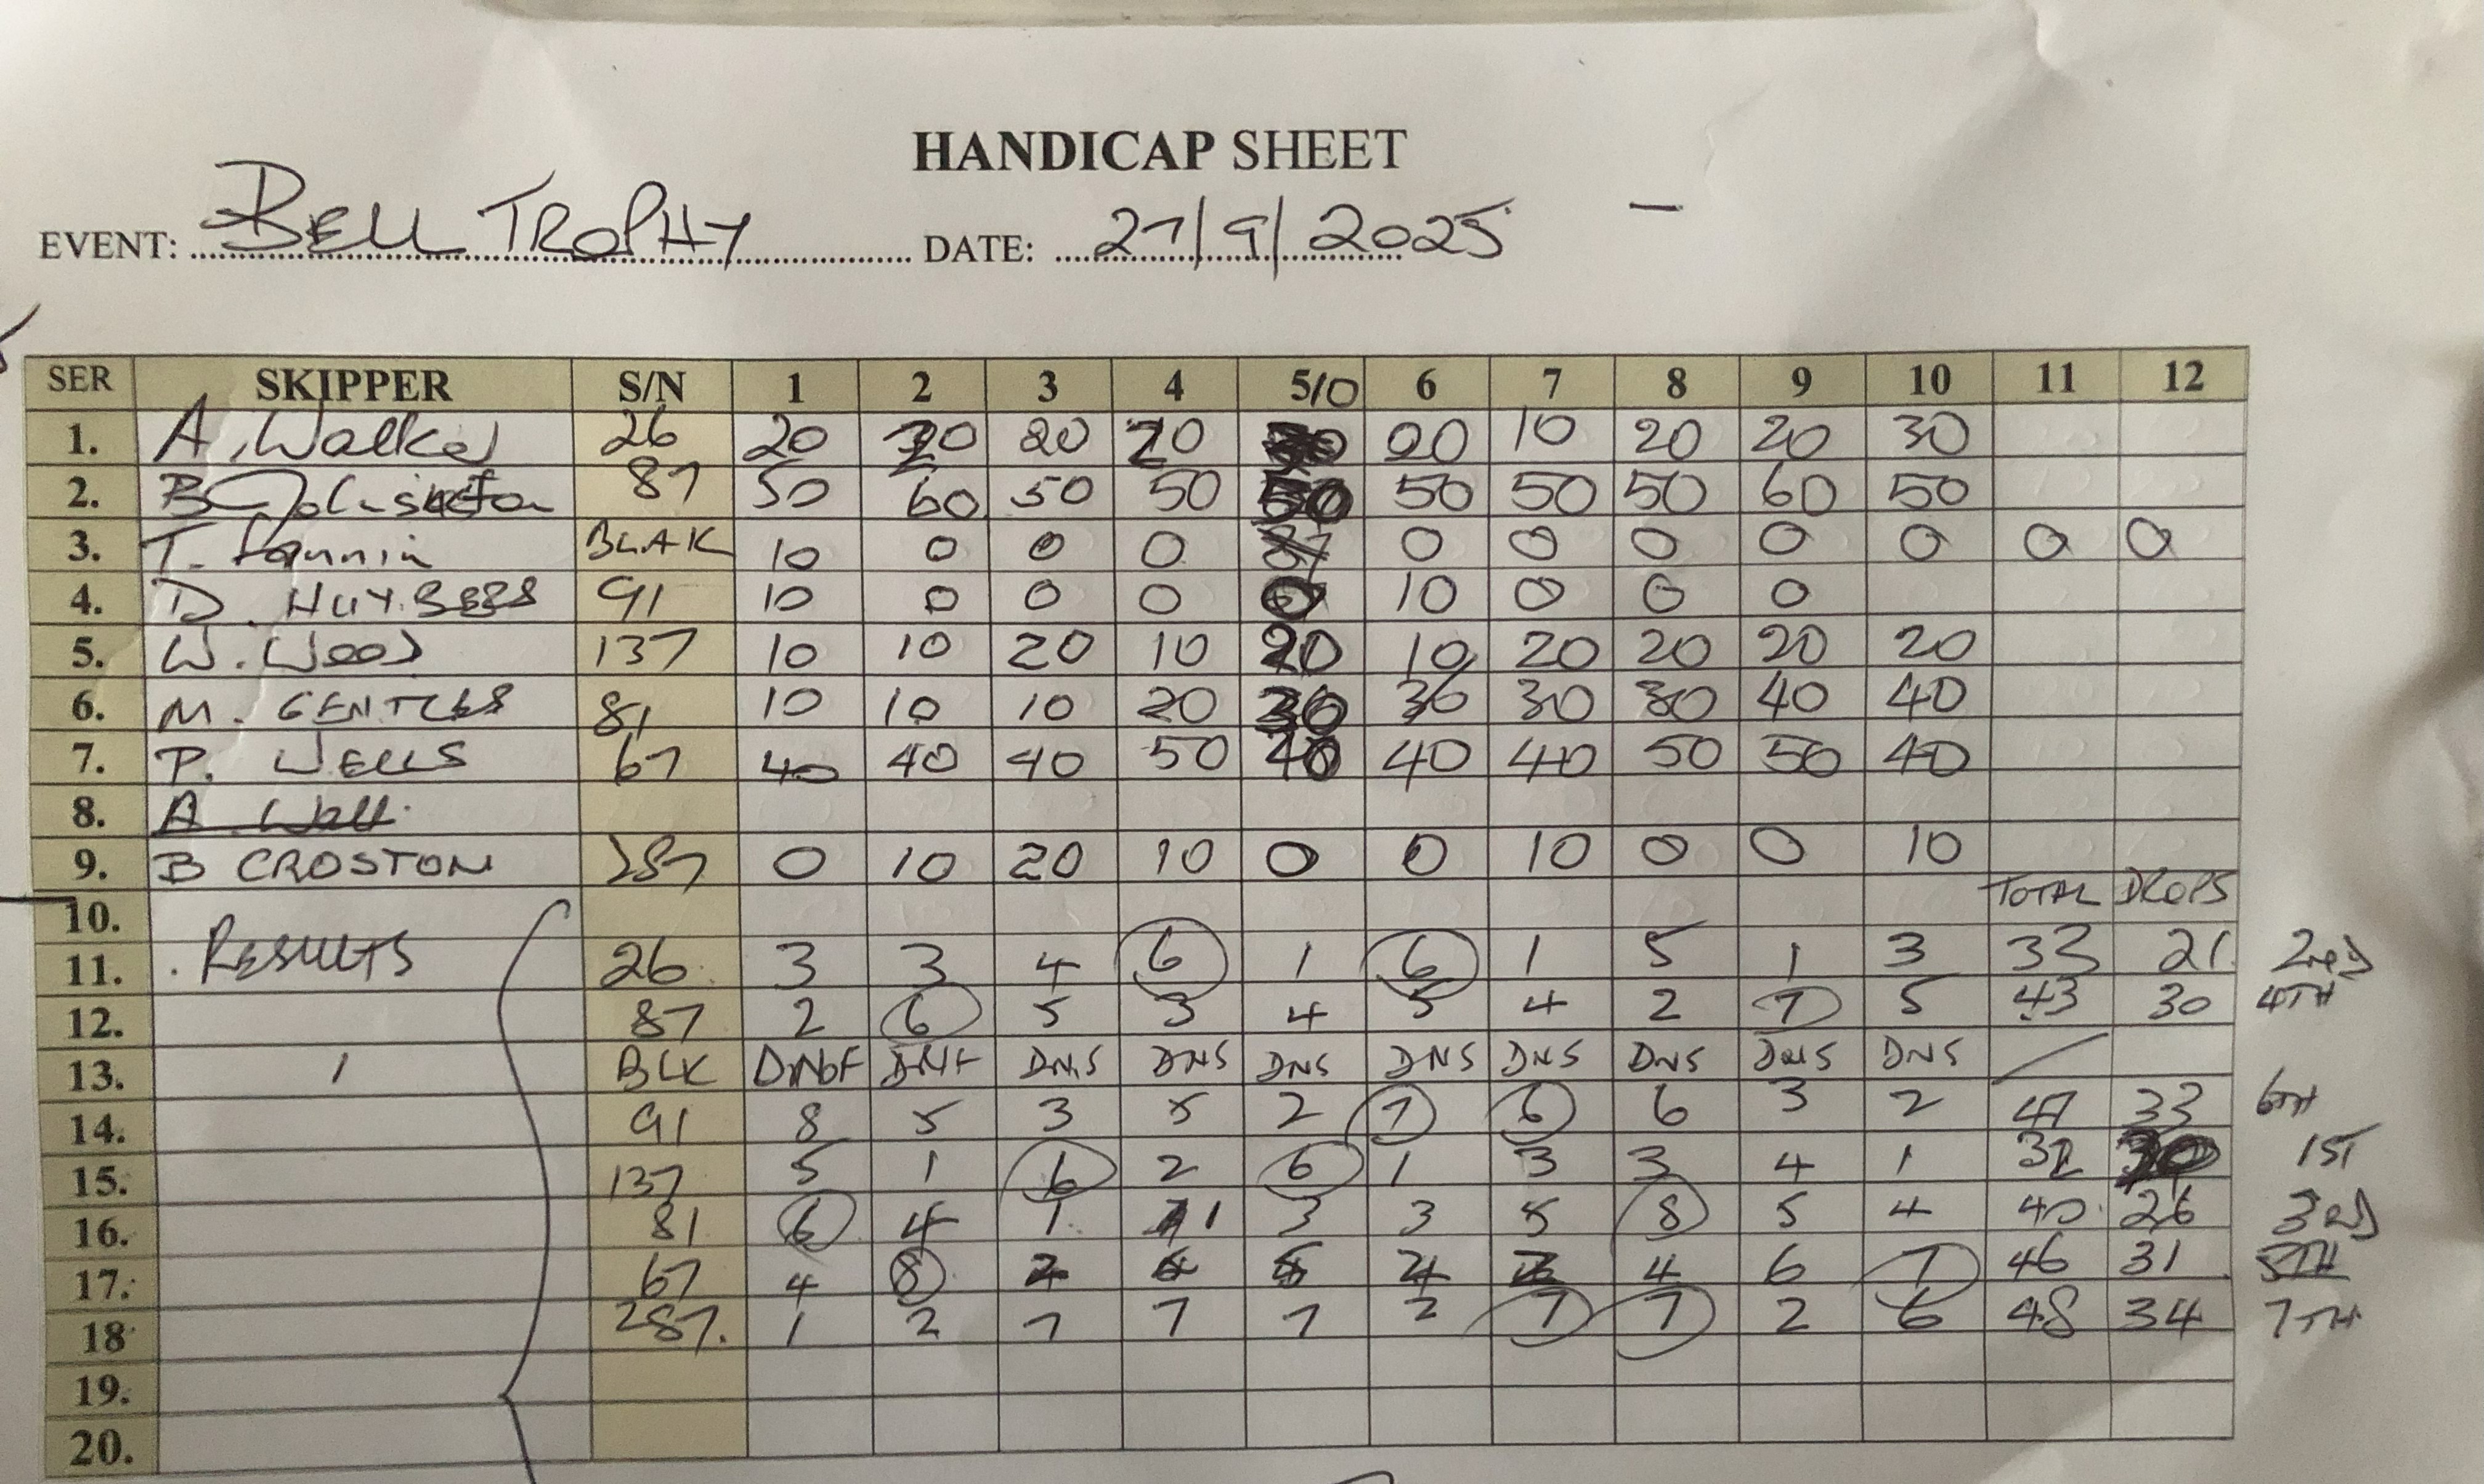 HANDICAP SHEET
EVENT: BELL TROPHY DATE: 21/9/2025 –
SER SKIPPER S/N 1 2 3 4 5/0 6 7 8 9 10 11 12
1. A. Walker 26 20 20 20 20 20 10 20 20 30
2. B 87 50 60 50 50 50 50 50 50 60 50
3. T. Fannin BLAK 10 0 0 0 0 0 0 0 0 0 0
4. D. HUYBERS 91 10 0 0 0 0 10 0 0 0
5. W. Wood 137 10 10 20 10 20 10 20 20 20 20
6. M. GENTLES 81 10 10 10 20 30 30 30 30 40 40
7. P. WELLS 67 40 40 40 50 40 40 40 50 50 40
8. A. Walk
9. B CROSTON 287 0 10 20 10 0 0 10 0 0 10
10. TOTAL DROPS
11. RESULTS 26 3 3 4 6 1 6 1 5 1 3 33 21 2ND
12. 87 2 6 5 3 4 5 4 2 7 5 43 30 4TH
13. BLK DNF DNF DNS DNS DNS DNS DNS DNS DNS DNS
14. 91 8 5 3 5 2 7 6 6 3 2 47 33 6TH
15. 137 5 1 6 2 6 1 3 3 4 1 32 1ST
16. 81 6 4 1 1 3 3 5 8 5 4 40 26 3RD
17. 67 4 8 2 4 4 6 7 46 31 5TH
18 287. 1 2 7 7 7 2 7 7 2 6 48 34 7TH
19.
20.